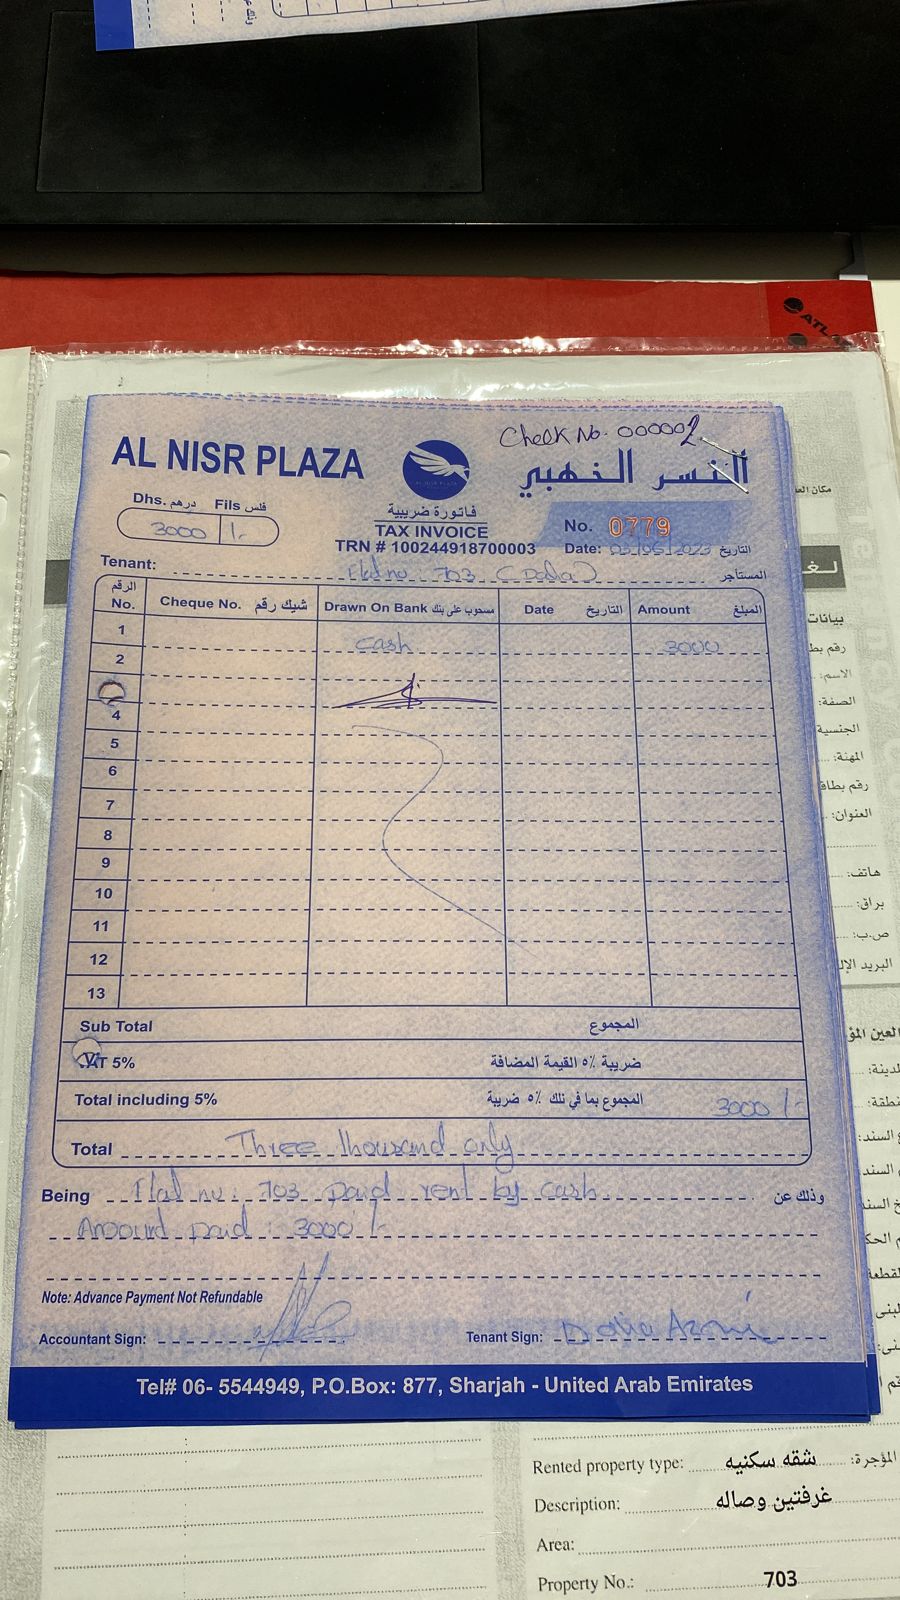 Check No. 000002
AL NISR PLAZA
النسر الذهبي
Dhs. درهم Fils فلس
3000 /-
فاتورة ضريبية
TAX INVOICE
TRN # 100244918700003
No. 0779
Date: 03/06/2023 التاريخ
Tenant: Flat no: 703 ( المستأجر
الرقم No. Cheque No. شيك رقم Drawn On Bank مسحوب على بنك Date التاريخ Amount المبلغ
1
cash 3000
2
4
5
6
7
8
9
10
11
12
13
Sub Total المجموع
VAT 5% ضريبة ٥٪ القيمة المضافة
Total including 5% المجموع بما في ذلك ٥٪ ضريبة 3000 /-
Total Three thousand only
Being Flat no: 703 paid rent by cash وذلك عن
Amount paid : 3000 /-
Note: Advance Payment Not Refundable
Accountant Sign: Tenant Sign:
Tel# 06- 5544949, P.O.Box: 877, Sharjah - United Arab Emirates
Rented property type: شقه سكنيه المؤجرة:
Description: غرفتين وصاله
Area:
Property No.: 703
ATLA
بيانات
الاسم:
الصفة:
الجنسية
المهنة:
رقم بطاق
العنوان:
هاتف:
براق:
ص.ب:
البريد الإل